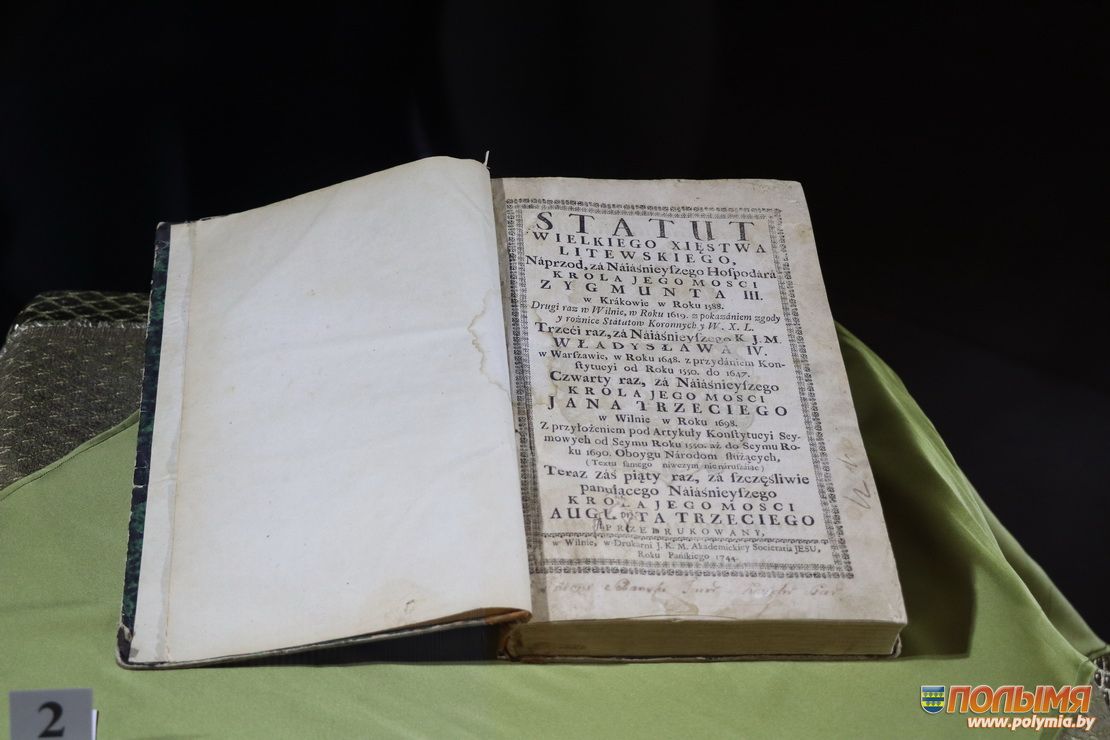 STATUT
WIELKIEGO XIĘSTWA
LITEWSKIEGO,
Náprzod, zá Náiáśnieyſzego Hoſpodárá
KROLA JEGOMOSCI
ZYGMUNTA III.
w Krákowie w Roku 1588.
Drugi raz w Wilnie, w Roku 1619. z pokazániem zgody
y rożnice Statutow Koronnych y W. X. L.
Trzeći raz, zá Náiáśnieyſzego K. J. M.
WŁADYSŁAWA IV.
w Warſzawie, w Roku 1648. z przydániem Kon-
ſtytucyi od Roku 1550. do 1647.
Czwarty raz, zá Náiáśnieyſzego
KROLA JEGO MOSCI
JANA TRZECIEGO
w Wilnie w Roku 1698.
Z przyłożeniem pod Artykuły Konſtytucyi Sey-
mowych od Seymu Roku 1550. aż do Seymu Ro-
ku 1690. Oboygu Národom ſłużących,
(Textu ſamego niwczym nienáruſzáiąc)
Teraz záś piąty raz, zá ſzczęśliwie
panuiącego Náiáśnieyſzego
KROLA JEGO MOSCI
AUGUSTA TRZECIEGO
PRZEDRUKOWANY,
w Wilnie, w Drukarni J. K. M. Akademickiey Societatis JESU,
Roku Pańſkiego 1744.
2
ПОЛЫМЯ
www.polymia.by